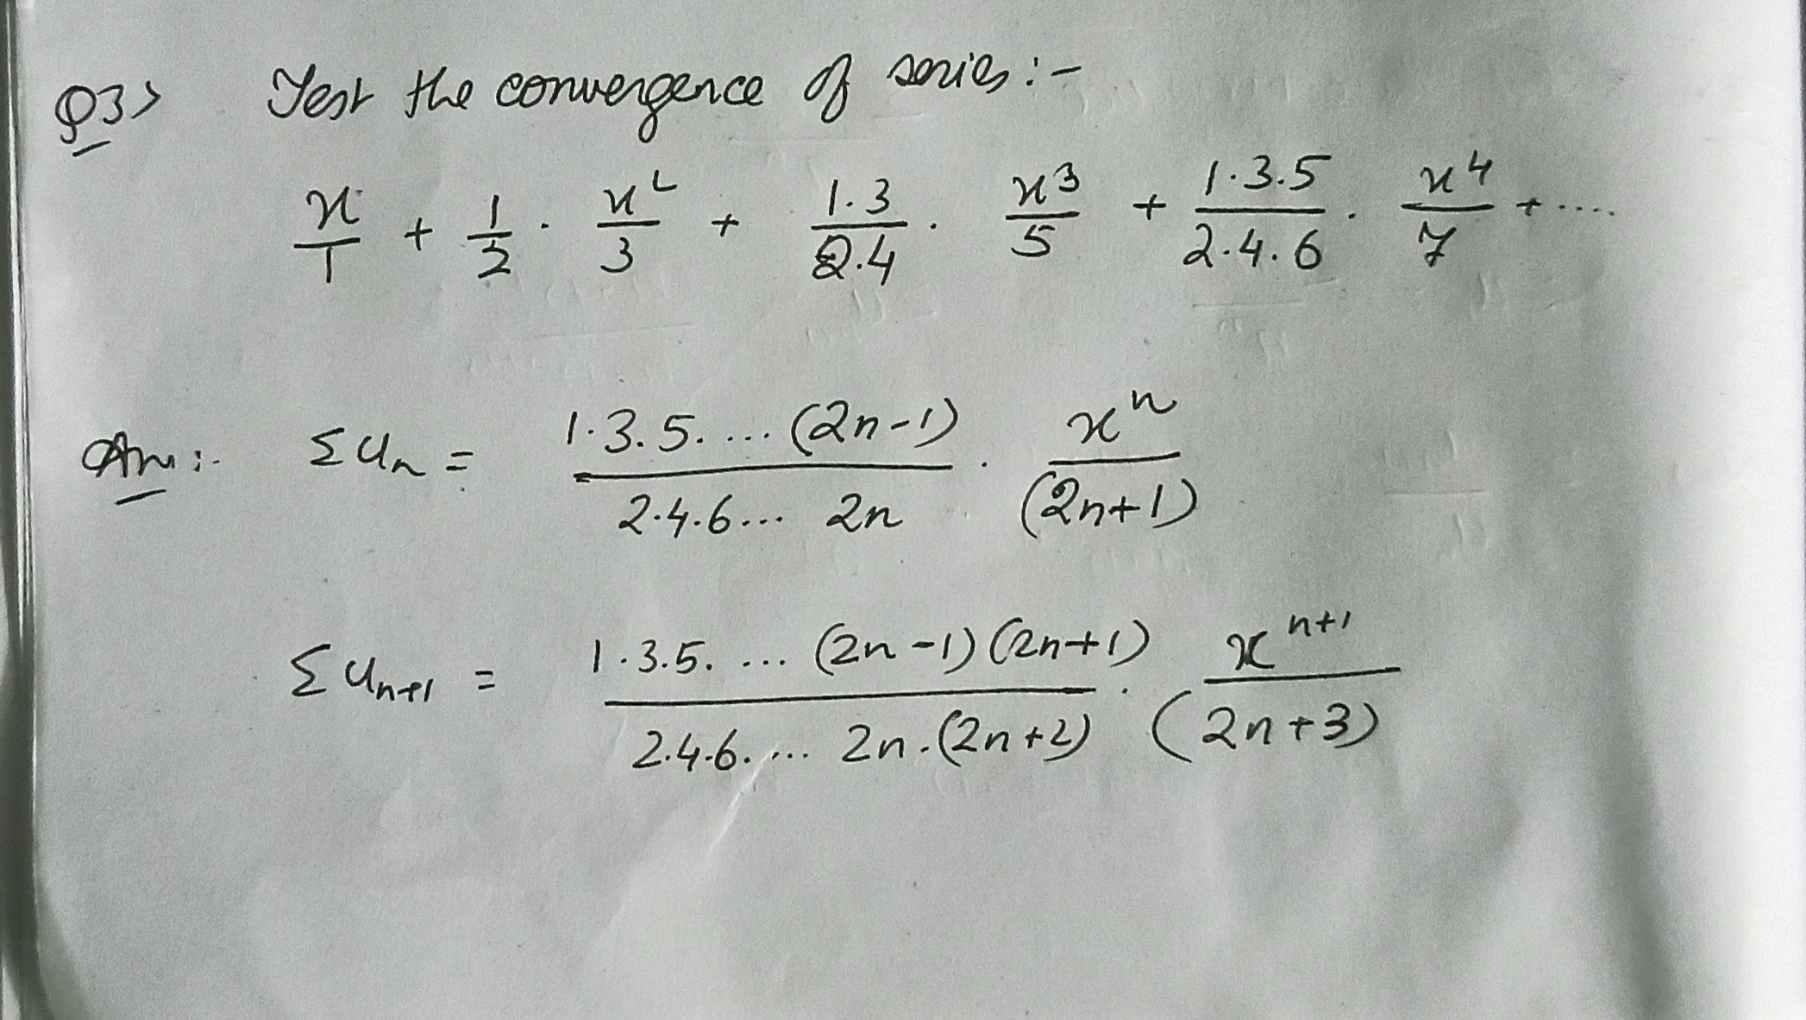 Q3> Test the convergence of series :-
x/1 + 1/2 . x²/3 + 1.3/2.4 . x³/5 + 1.3.5/2.4.6 . x⁴/7 + ....
Ans :- Σun = 1.3.5. ... (2n-1)/2.4.6... 2n . xⁿ/(2n+1)
Σun+1 = 1.3.5. ... (2n-1)(2n+1)/2.4.6. ... 2n.(2n+2) . xⁿ⁺¹/(2n+3)